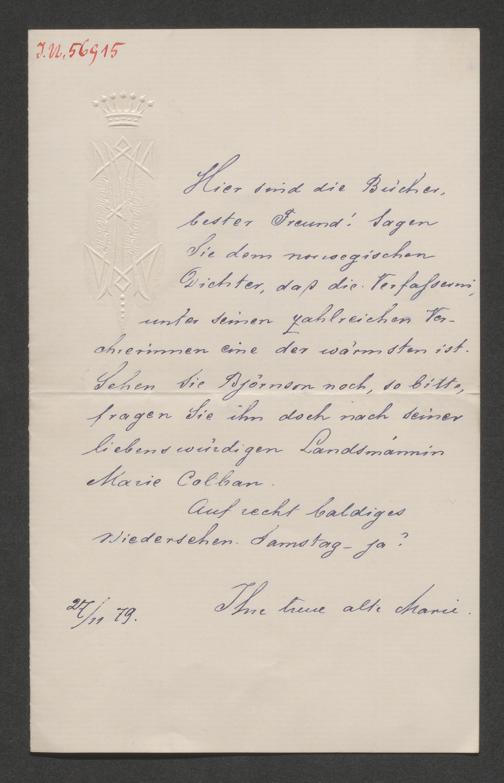 J.N. 56915
Hier sind die Bücher,
bester Freund! Sagen
Sie dem norwegischen
Dichter, daß die Verfasserin,
unter seinen zahlreichen Ver-
ehrerinnen eine der wärmsten ist.
Sehen Sie Björnson noch, so bitte,
fragen Sie ihn doch nach seiner
liebenswürdigen Landsmännin
Marie Colban.
Auf recht baldiges
Wiedersehen. Samstag – ja?
Ihre treue alte Marie.
27/11 79.